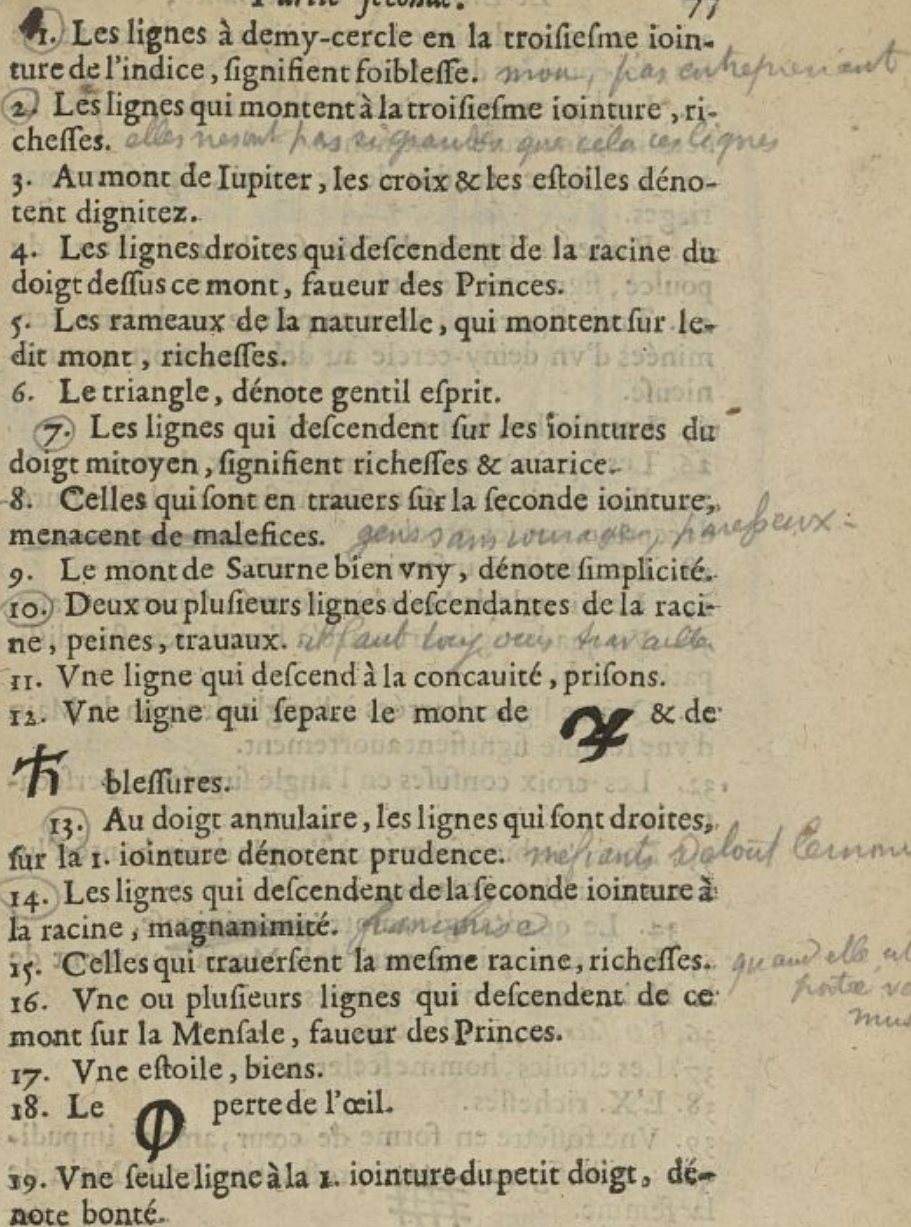 Partie seconde. 77
1. Les lignes à demy-cercle en la troiſieſme ioin-
ture de l'indice, ſignifient foibleſſe. mou, pas entreprenant
2. Les lignes qui montent à la troiſieſme iointure, ri-
cheſſes. elles ne sont pas si grandes que cela ces lignes
3. Au mont de Iupiter, les croix & les eſtoiles déno-
tent dignitez.
4. Les lignes droites qui deſcendent de la racine du
doigt deſſus ce mont, faueur des Princes.
5. Les rameaux de la naturelle, qui montent ſur le-
dit mont, richeſſes.
6. Le triangle, dénote gentil eſprit.
7. Les lignes qui deſcendent ſur les iointures du
doigt mitoyen, ſignifient richeſſes & auarice.
8. Celles qui ſont en trauers ſur la ſeconde iointure,
menacent de malefices. gens sans courage, paresseux
9. Le mont de Saturne bien vny, dénote ſimplicité.
10. Deux ou pluſieurs lignes deſcendantes de la raci-
ne, peines, trauaux. il faut toujours travailler
11. Vne ligne qui deſcend à la concauité, priſons.
12. Vne ligne qui ſepare le mont de ♃ & de
♄ bleſſures.
13. Au doigt annulaire, les lignes qui ſont droites,
ſur la 1. iointure dénotent prudence. méfiants
14. Les lignes qui deſcendent de la ſeconde iointure à
la racine, magnanimité. franchise
15. Celles qui trauerſent la meſme racine, richeſſes. quand elle
16. Vne ou pluſieurs lignes qui deſcendent de ce
mont ſur la Menſale, faueur des Princes.
17. Vne eſtoile, biens.
18. Le φ perte de l'œil.
19. Vne ſeule ligne à la 1. iointure du petit doigt, dé-
note bonté.